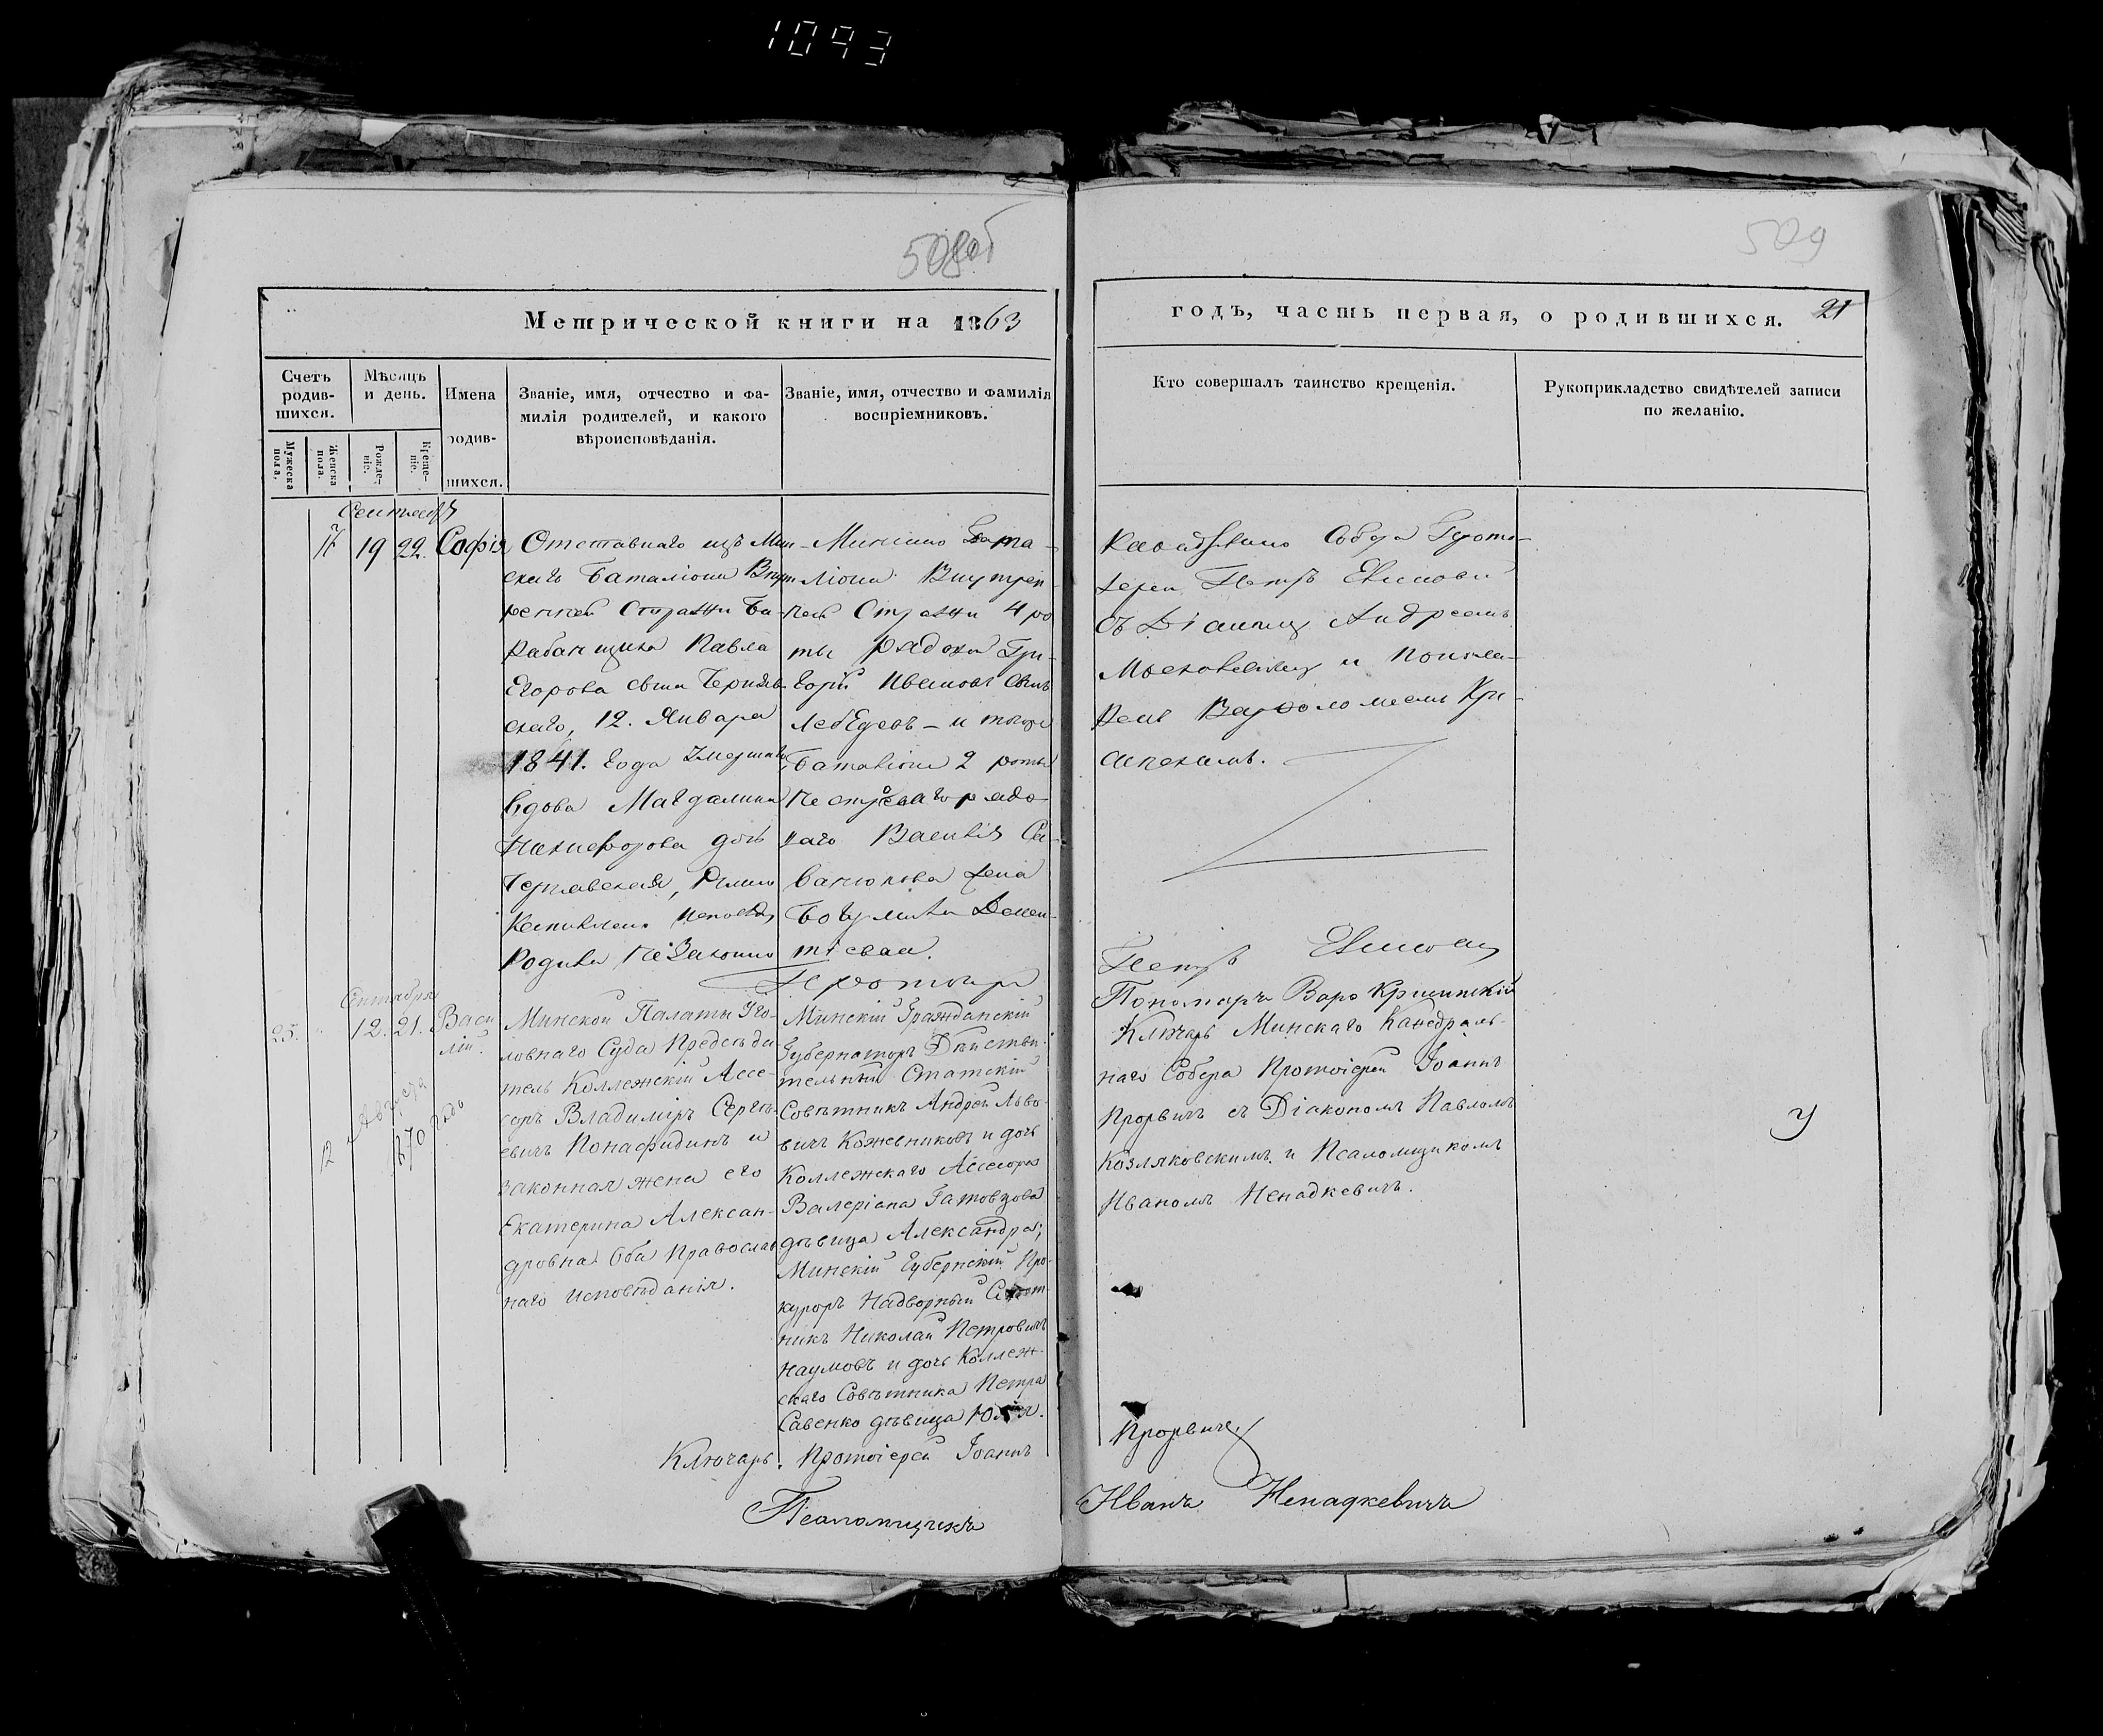 1093
508об
509
Метрической книги на 1863
годъ, часть первая, о родившихся. 21
Счетъ родив-шихся.
Мѣсяцъ и день.
Имена родив-шихся.
Званіе, имя, отчество и фа-
милія родителей, и какого
вѣроисповѣданія.
Званіе, имя, отчество и фамилія
воспріемниковъ.
Кто совершалъ таинство крещенія.
Рукоприкладство свидѣтелей записи
по желанію.
Мужеска пола.
Женска пола.
Рожде-ніе.
Креще-ніе.
Сентября
19 22. Софія
Отставнаго изъ Мин-
скаго Баталіона Внут
ренней Стражи Ба-
рабанщика Павла
Егорова сына Черняв-
скаго, 12. Января
1841. года
вдова Магдалина
Никифорова дочь
Чернявская, Римско
родила незаконно
Минскаго Бата-
ліона Внутрен-
ней Стражи 4 ро
ты рядовой Гри-
горій Ивановъ сынъ
Лебедевъ - и того же
Баталіона 2 роты
рядо-
ваго Василія
жена
Богумила Демен-
тіева.
Каѳедральнаго Собора Прото-
іерей Петръ
съ Діакономъ Андреемъ
и Понома-
ремъ Варѳоломеемъ Кри-
Петръ
Пономарь Варѳ Крипинскій
Сентября
25. 12. 21. Васи
лій.
Минской Палаты Уго-
ловнаго Суда Предсѣда
тель Коллежскій Ассе-
соръ Владиміръ Сергѣ-
евичъ Понафидинъ и
законная жена его
Екатерина Алексан-
дровна Оба Православ
наго исповѣданія.
Минскій Гражданскій
Губернаторъ Дѣйстви-
тельный Статскій
Совѣтникъ Андрей Льво-
вичъ Кожевниковъ и дочь
Коллежскаго Ассесора
Валеріана Гатовцова
дѣвица Александра;
Минскій Губернскій Про-
куроръ Надворный Совѣт-
никъ Николай Петровичъ
Наумовъ и дочь Коллеж-
скаго Совѣтника Петра
Савенко дѣвица Юлія.
Ключарь Минскаго Каѳедраль-
наго Собора Протоіерей Іоаннъ
Прорвичъ съ Діакономъ Павломъ
Козляковскимъ и Псаломщикомъ
Иваномъ Ненадкевичъ.
12 Августа 1870 года
Ключарь, Протоіерей Іоаннъ Прорвичъ
Псаломщикъ Иванъ Ненадкевичъ